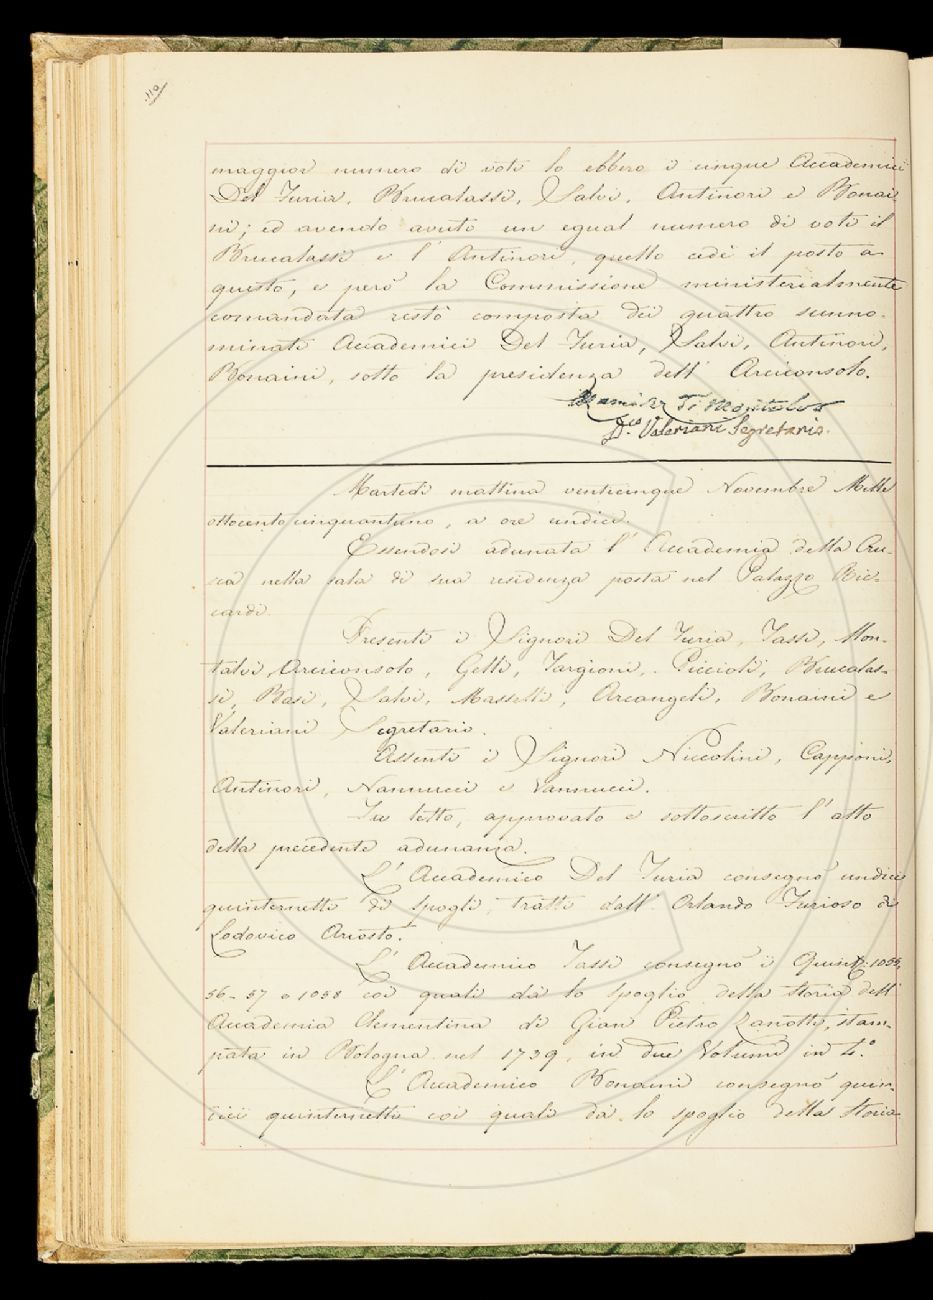 110
maggior numero di voti lo ebbero i cinque Accademici
Del Furia, Brucalassi, Salvi, Antinori e Bonai-
ni; ed avendo avuto un egual numero di voti il
Brucalassi e l' Antinori, quello cedè il posto a
questo, e però la Commissione ministerialmente
comandata restò composta dei quattro sunno-
minati Accademici Del Furia, Salvi, Antinori,
Bonaini, sotto la presidenza dell' Arciconsolo.
Valeriani Segretario.
Martedì mattina venticinque Novembre Mille
ottocento cinquantuno, a ore undici.
Essendosi adunata l' Accademia della Cru-
sca nella sala di sua residenza posta nel Palazzo Ric-
cardi.
Presenti i Signori Del Furia, Tassi, Mon-
talvi Arciconsolo, Gelli, Targioni, Piccioli, Brucalas-
si, Basi, Salvi, Masselli, Arcangeli, Bonaini e
Valeriani Segretario.
Assenti i Signori Niccolini, Capponi,
Antinori, Nannucci e Vannucci.
Fu letto, approvato e sottoscritto l' atto
della precedente adunanza.
L' Accademico Del Furia consegnò undici
quinternetti di spogli, tratti dall' Orlando Furioso di
Lodovico Ariosto.
L' Accademico Tassi consegnò i Quint. 1055,
56-57 e 1058 coi quali dà lo spoglio della Storia dell'
Accademia Clementina di Gian Pietro Zanotti, stam-
pata in Bologna nel 1739, in due Volumi in 4.°
L' Accademico Bonaini consegnò quin-
dici quinternetti coi quali dà lo spoglio della Storia